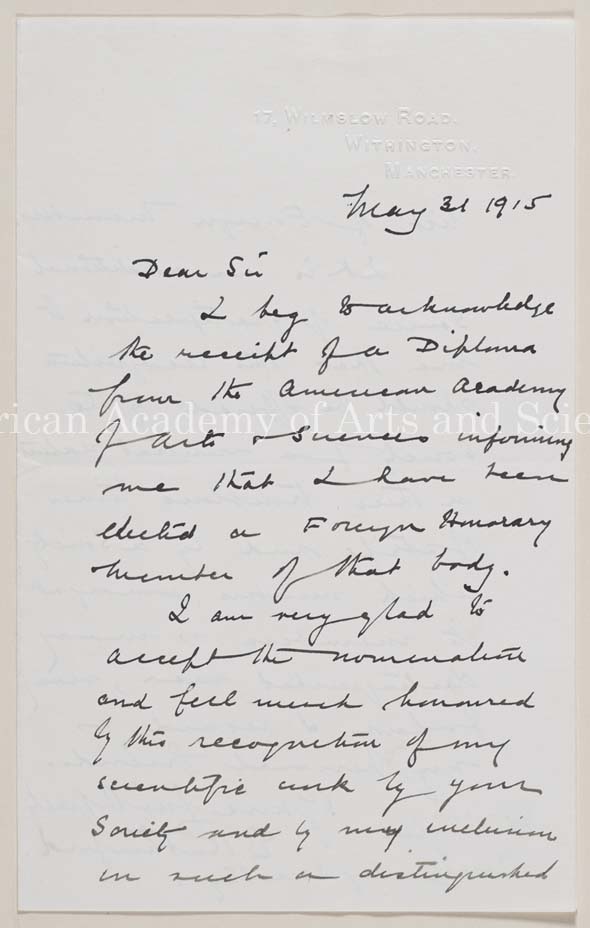 17, WILMSLOW ROAD.
WITHINGTON.
MANCHESTER.
May 31 1915
Dear Sir
I beg to acknowledge
the receipt of a Diploma
from the American Academy
rican Academy of Arts and Scie
of Arts & Sciences informing
me that I have been
elected a Foreign Honorary
Member of that body.
I am very glad to
accept the nomination
and feel much honoured
by this recognition of my
scientific work by your
Society and by my inclusion
in such a distinguished